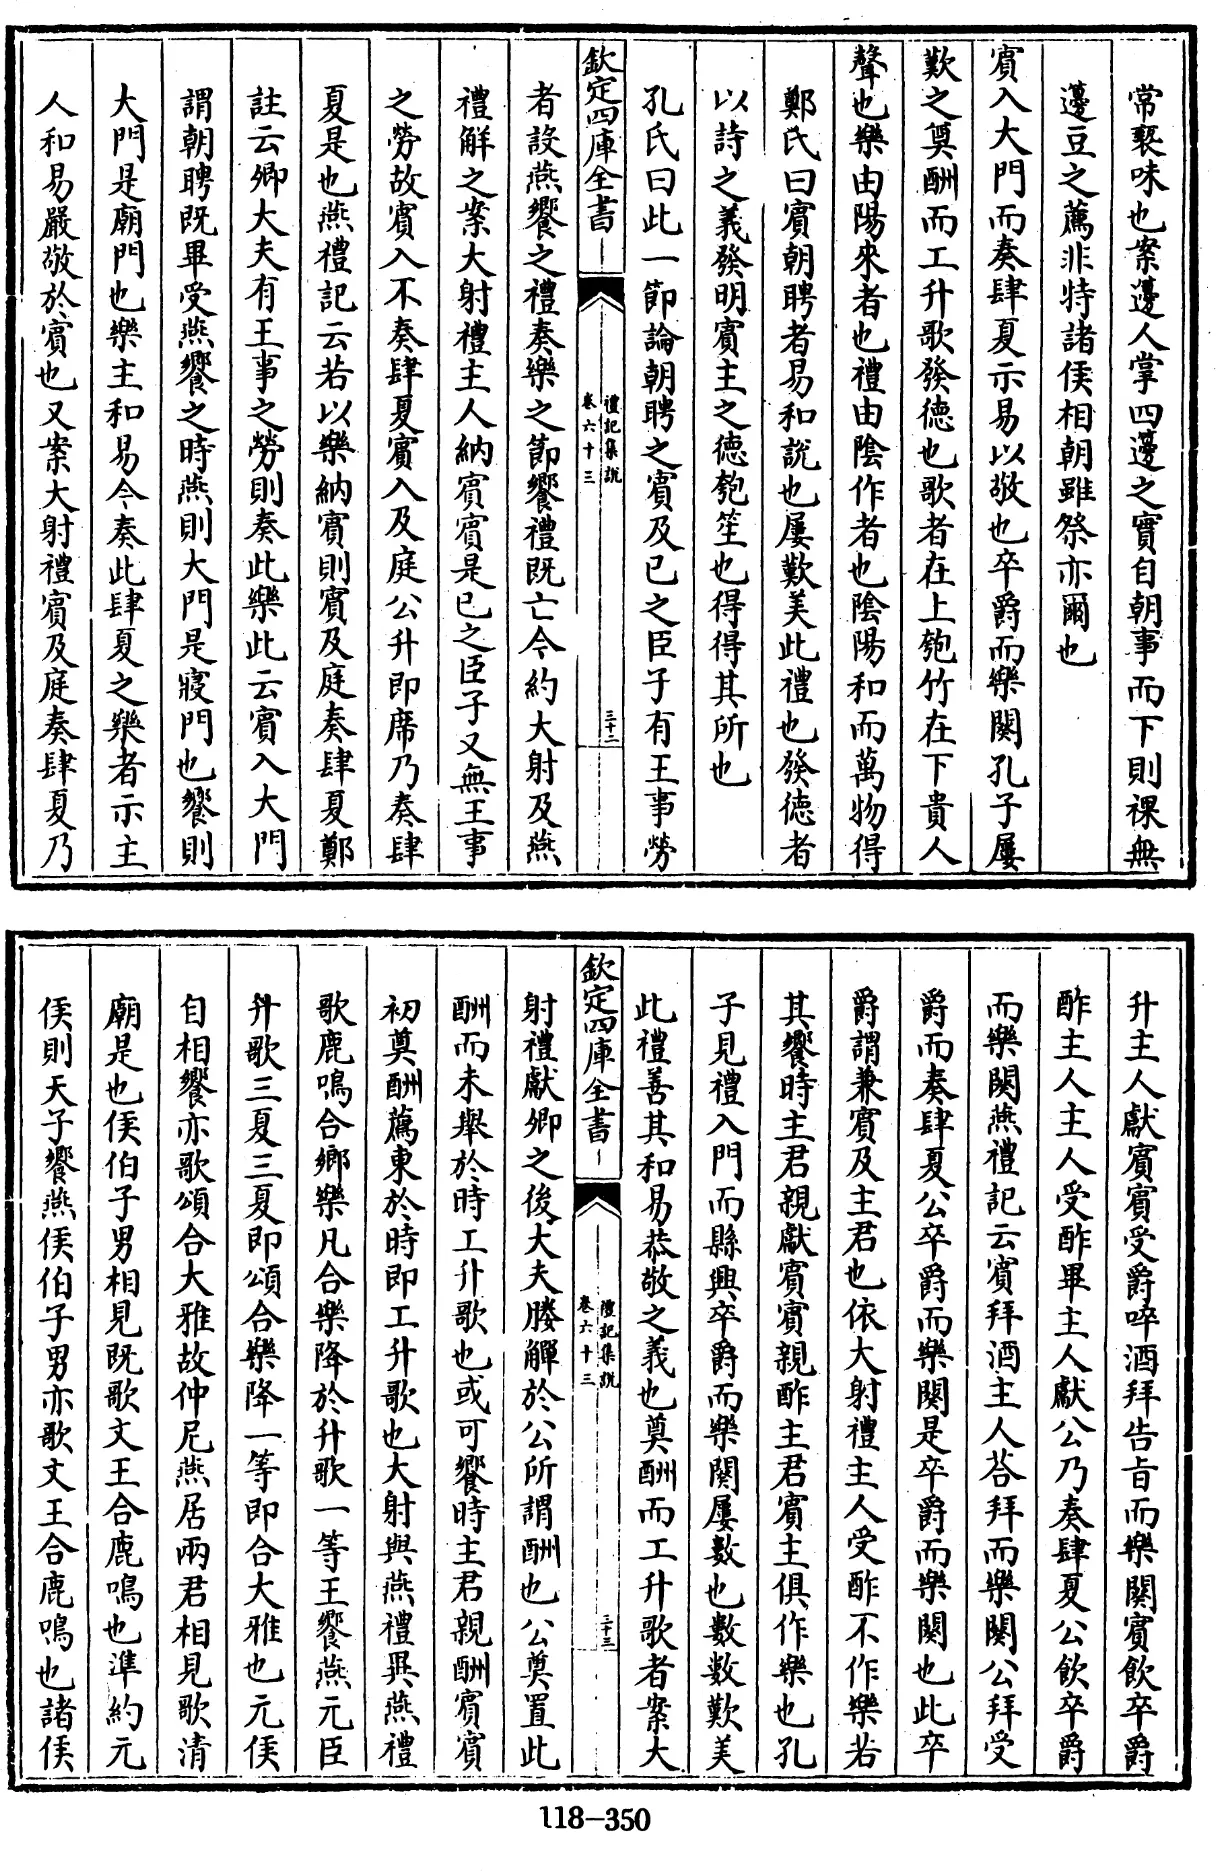 常褻味也案籩人掌四籩之實自朝事而下則祼無
籩豆之薦非特諸侯相朝雖祭亦爾也
賓入大門而奏肆夏示易以敬也卒爵而樂闋孔子屢
歎之奠酬而工升歌發德也歌者在上匏竹在下貴人
聲也樂由陽來者也禮由陰作者也陰陽和而萬物得
鄭氏曰賓朝聘者易和說也屢歎美此禮也發德者
以詩之義發明賓主之德匏笙也得得其所也
孔氏曰此一節論朝聘之賓及已之臣子有王事勞
欽定四庫全書
禮記集說
卷六十三
三十二
者設燕饗之禮奏樂之節饗禮既亡今約大射及燕
禮解之案大射禮主人納賓賓是已之臣子又無王事
之勞故賓入不奏肆夏賓入及庭公升即席乃奏肆
夏是也燕禮記云若以樂納賓則賓及庭奏肆夏鄭
註云卿大夫有王事之勞則奏此樂此云賓入大門
謂朝聘既畢受燕饗之時燕則大門是寢門也饗則
大門是廟門也樂主和易今奏此肆夏之樂者示主
人和易嚴敬於賓也又案大射禮賓及庭奏肆夏乃
升主人獻賓賓受爵啐酒拜告旨而樂闋賓飲卒爵
酢主人主人受酢畢主人獻公乃奏肆夏公飲卒爵
而樂闋燕禮記云賓拜酒主人荅拜而樂闋公拜受
爵而奏肆夏公卒爵而樂闋是卒爵而樂闋也此卒
爵謂兼賓及主君也依大射禮主人受酢不作樂若
其饗時主君親獻賓賓親酢主君賓主俱作樂也孔
子見禮入門而縣興卒爵而樂闋屢數也數數歎美
此禮善其和易恭敬之義也奠酬而工升歌者案大
欽定四庫全書
禮記集說
卷六十三
三十三
射禮獻卿之後大夫媵觶於公所謂酬也公奠置此
酬而未舉於時工升歌也或可饗時主君親酬賓賓
初奠酬薦東於時即工升歌也大射與燕禮異燕禮
歌鹿鳴合鄉樂凡合樂降於升歌一等王饗燕元臣
升歌三夏三夏即頌合樂降一等即合大雅也元侯
自相饗亦歌頌合大雅故仲尼燕居兩君相見歌清
廟是也侯伯子男相見既歌文王合鹿鳴也準約元
侯則天子饗燕侯伯子男亦歌文王合鹿鳴也諸侯
118-350